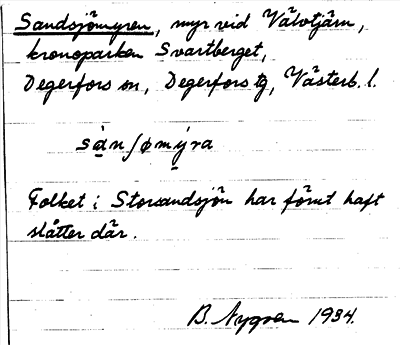 Sandsjömyren, myr vid Välvtjärn,
kronoparken Svartberget,
Degerfors sn, Degerfors tg, Västerb. l.
sàn ʃømýra
Folket i Storsandsjön har förut haft
slåtter där.
B. Nygren 1934.